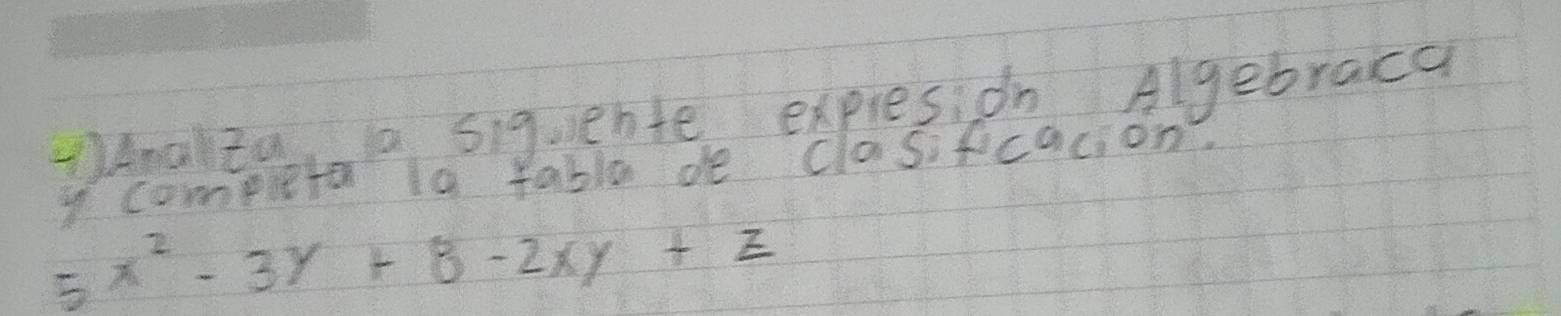 4) Analiza la siguiente expresión Algebraca
y completa la tabla de clasificación.
5x² - 3y + 8 - 2xy + z